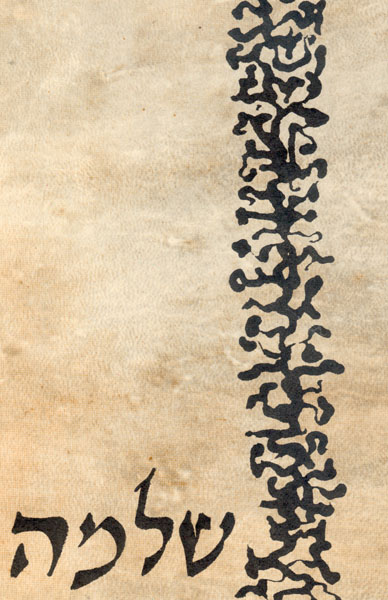 שלמה